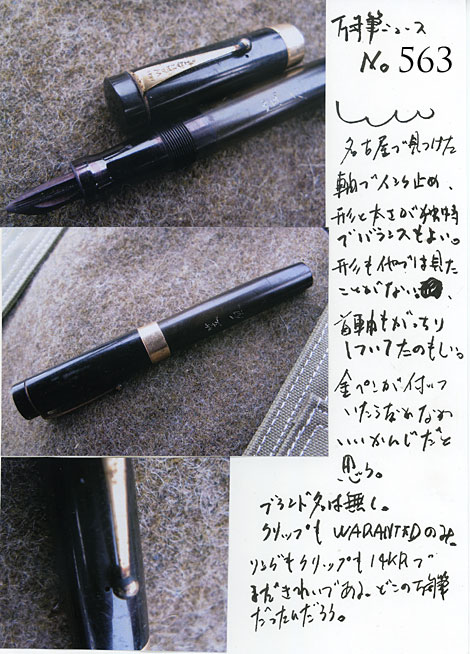 万年筆ニュース
No. 563
名古屋で見つけた
軸でインク止め、
形と太さが独特
でバランスもよい。
形も他では見た
ことがない、
首軸もがっちり
していてたのもしい。
金ペンが付いて
いたらなかなか
いいかんじだと
思う。
ブランド名は無し。
クリップも WARANTEDのみ
リングもクリップも14KRで
まだきれいである、どこの万年筆
だったんだろう。